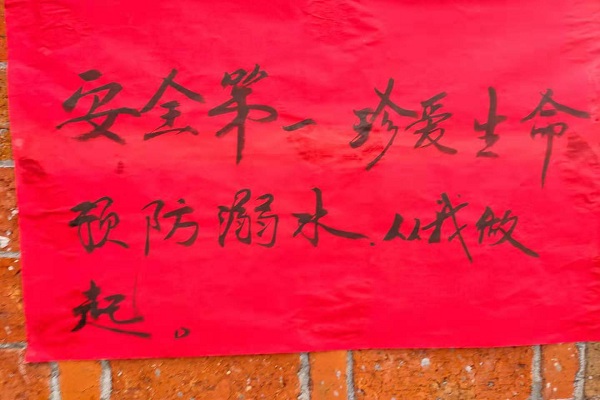 安全第一珍爱生命
预防溺水.从我做
起。